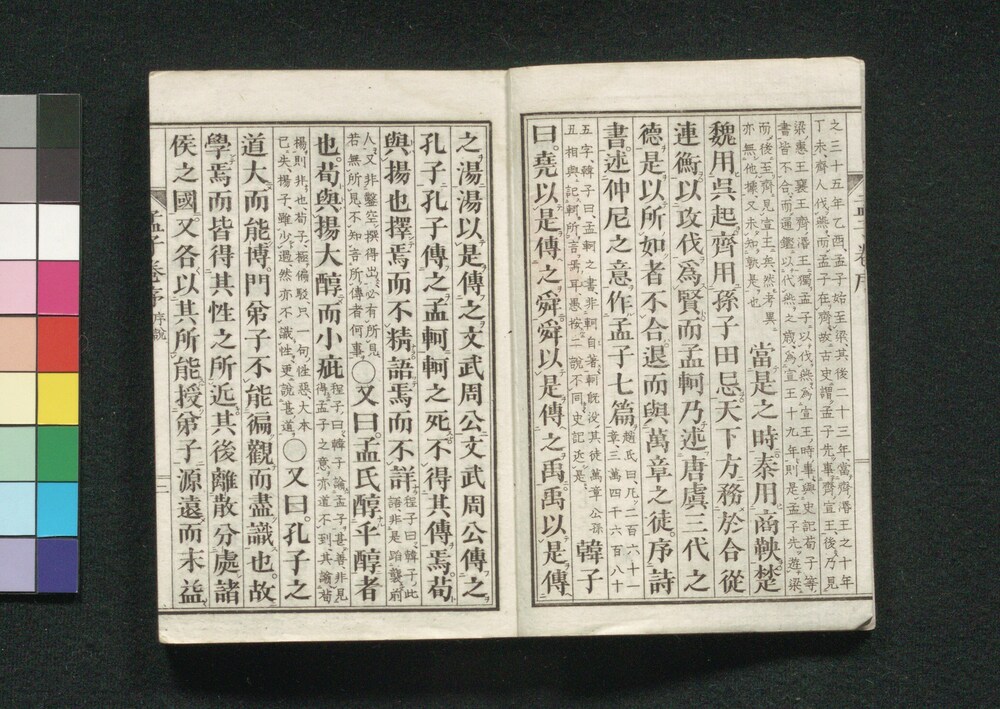 之三十五年乙酉孟子始至梁其後二十三年當齊湣王之十年
丁未齊人伐燕而孟子在齊故古史謂孟子先事齊宣王後乃見
梁惠王襄王齊湣王獨孟子以伐燕爲宣王時事與史記荀子等
書皆不合而通鑑以伐燕之歲爲宣王十九年則是孟子先遊梁
而後至齊見宣王矣然考異
亦無他據又未知孰是也
當是之時秦用商鞅楚
魏用吳起齊用孫子田忌天下方務於合從
連衡以攻伐爲賢而孟軻乃述唐虞三代之
德是以所如者不合退而與萬章之徒序詩
書述仲尼之意作孟子七篇
趙氏曰凡二百六十一
章三萬四千六百八十
五字韓子曰孟軻之書非軻自著軻既没其徒萬章公孫
丑相與記軻所言焉耳愚按二說不同史記近是
韓子
曰堯以是傳之舜舜以是傳之禹禹以是傳
之湯湯以是傳之文武周公文武周公傳之
孔子孔子傳之孟軻軻之死不得其傳焉荀
與揚也擇焉而不精語焉而不詳
程子曰韓子此
語非是蹈襲前
人又非鑿空撰得出必有所見
若無所見不知言所傳者何事
○又曰孟氏醇乎醇者
也荀與揚大醇而小疵
程子曰韓子論孟子甚善非見
得孟子之意亦道不到其論荀
揚則非也荀子極偏駁只一句性惡大本
已失揚子雖少過然亦不識性更說甚道
○又曰孔子之
道大而能博門弟子不能徧觀而盡識也故
學焉而皆得其性之所近其後離散分處諸
侯之國又各以其所能授弟子源遠而末益
孟子卷序
序說
二